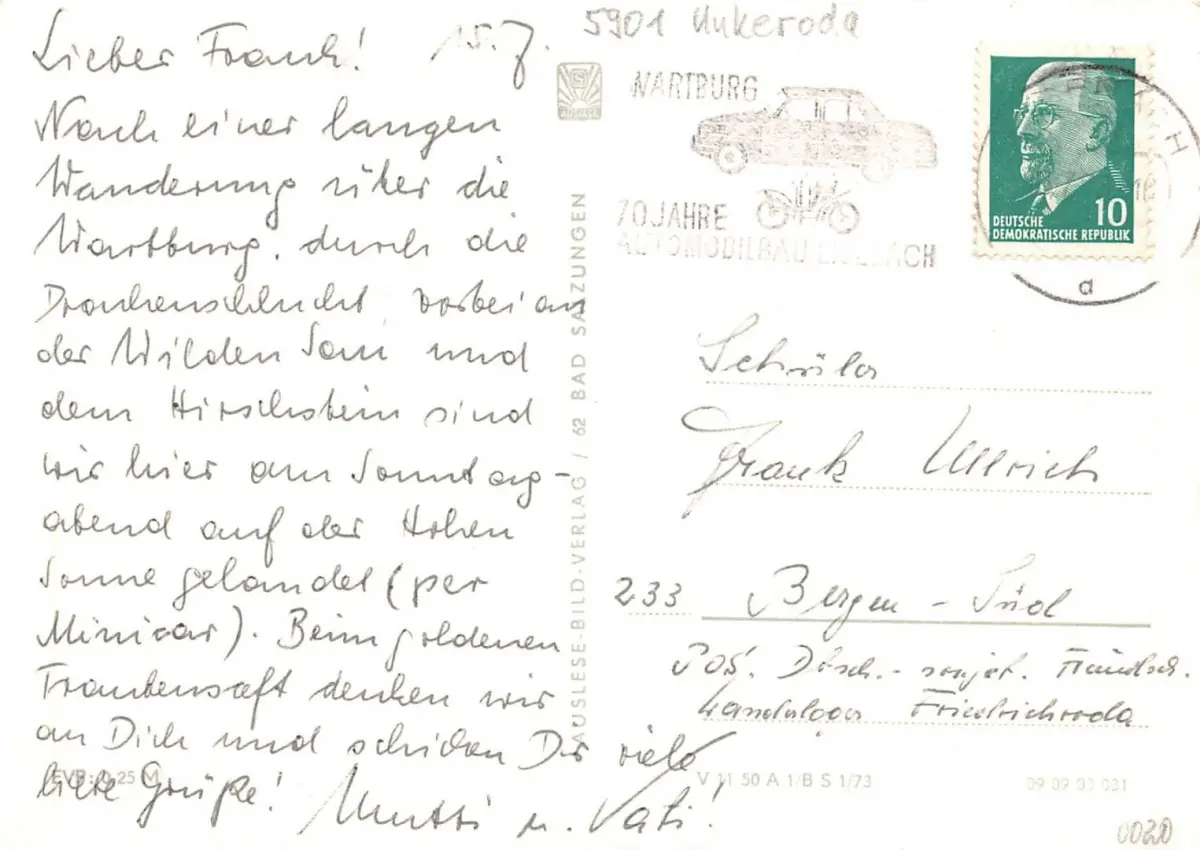 Lieber Frank! 15. 7.
Nach einer langen
Wanderung über die
Wartburg, durch die
Drachenschlucht vorbei an
der Wilden Sau und
dem Hirschstein sind
wir hier am Sonntag-
abend auf der Hohen
Sonne gelandet (per
Minicar). Beim goldenen
Traubensaft denken wir
an Dich und schicken Dir viele
liebe Grüße! Mutti u. Vati!
EVP: 0,25 M
S
AUSLESE
AUSLESE-BILD-VERLAG / 62 BAD SALZUNGEN
5901 Unkeroda
WARTBURG
70 JAHRE
AUTOMOBILBAU EISENACH
DEUTSCHE
DEMOKRATISCHE REPUBLIK
10
a
Schüler
Frank Ullrich
233 Bergen - Süd
Dtsch.- sowjet. Freundsch.
Friedrichroda
V 11 50 A 1/B S 1/73
09 09 03 031
0020